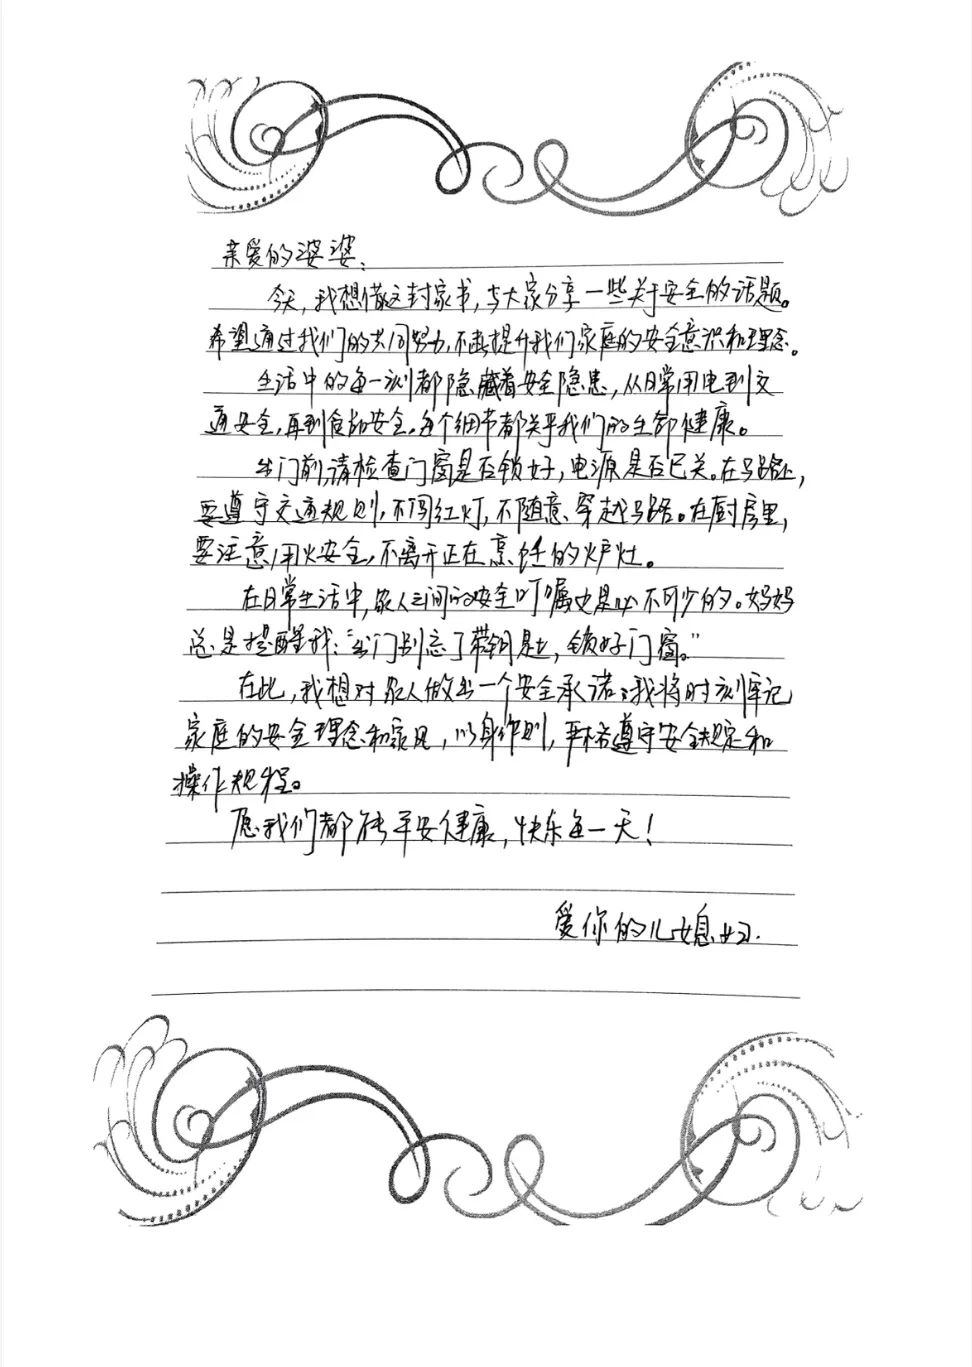 亲爱的婆婆：
今天，我想借这封家书，与大家分享一些关于安全的话题。
希望通过我们的共同努力，不断提升我们家庭的安全意识和理念。
生活中的每一刻都隐藏着安全隐患，从日常用电到交
通安全，再到食品安全，每个细节都关乎我们的生命健康。
出门前，请检查门窗是否锁好，电源是否已关。在马路上，
要遵守交通规则，不闯红灯，不随意穿越马路。在厨房里，
要注意用火安全，不离开正在烹饪的炉灶。
在日常生活中，家人之间的安全叮嘱也是必不可少的。妈妈
总是提醒我：“出门别忘了带钥匙，锁好门窗。”
在此，我想对家人做出一个安全承诺：我将时刻牢记
家庭的安全理念和家风，以身作则，严格遵守安全规定和
操作规程。
愿我们都能平安健康，快乐每一天！
爱你的儿媳妇.